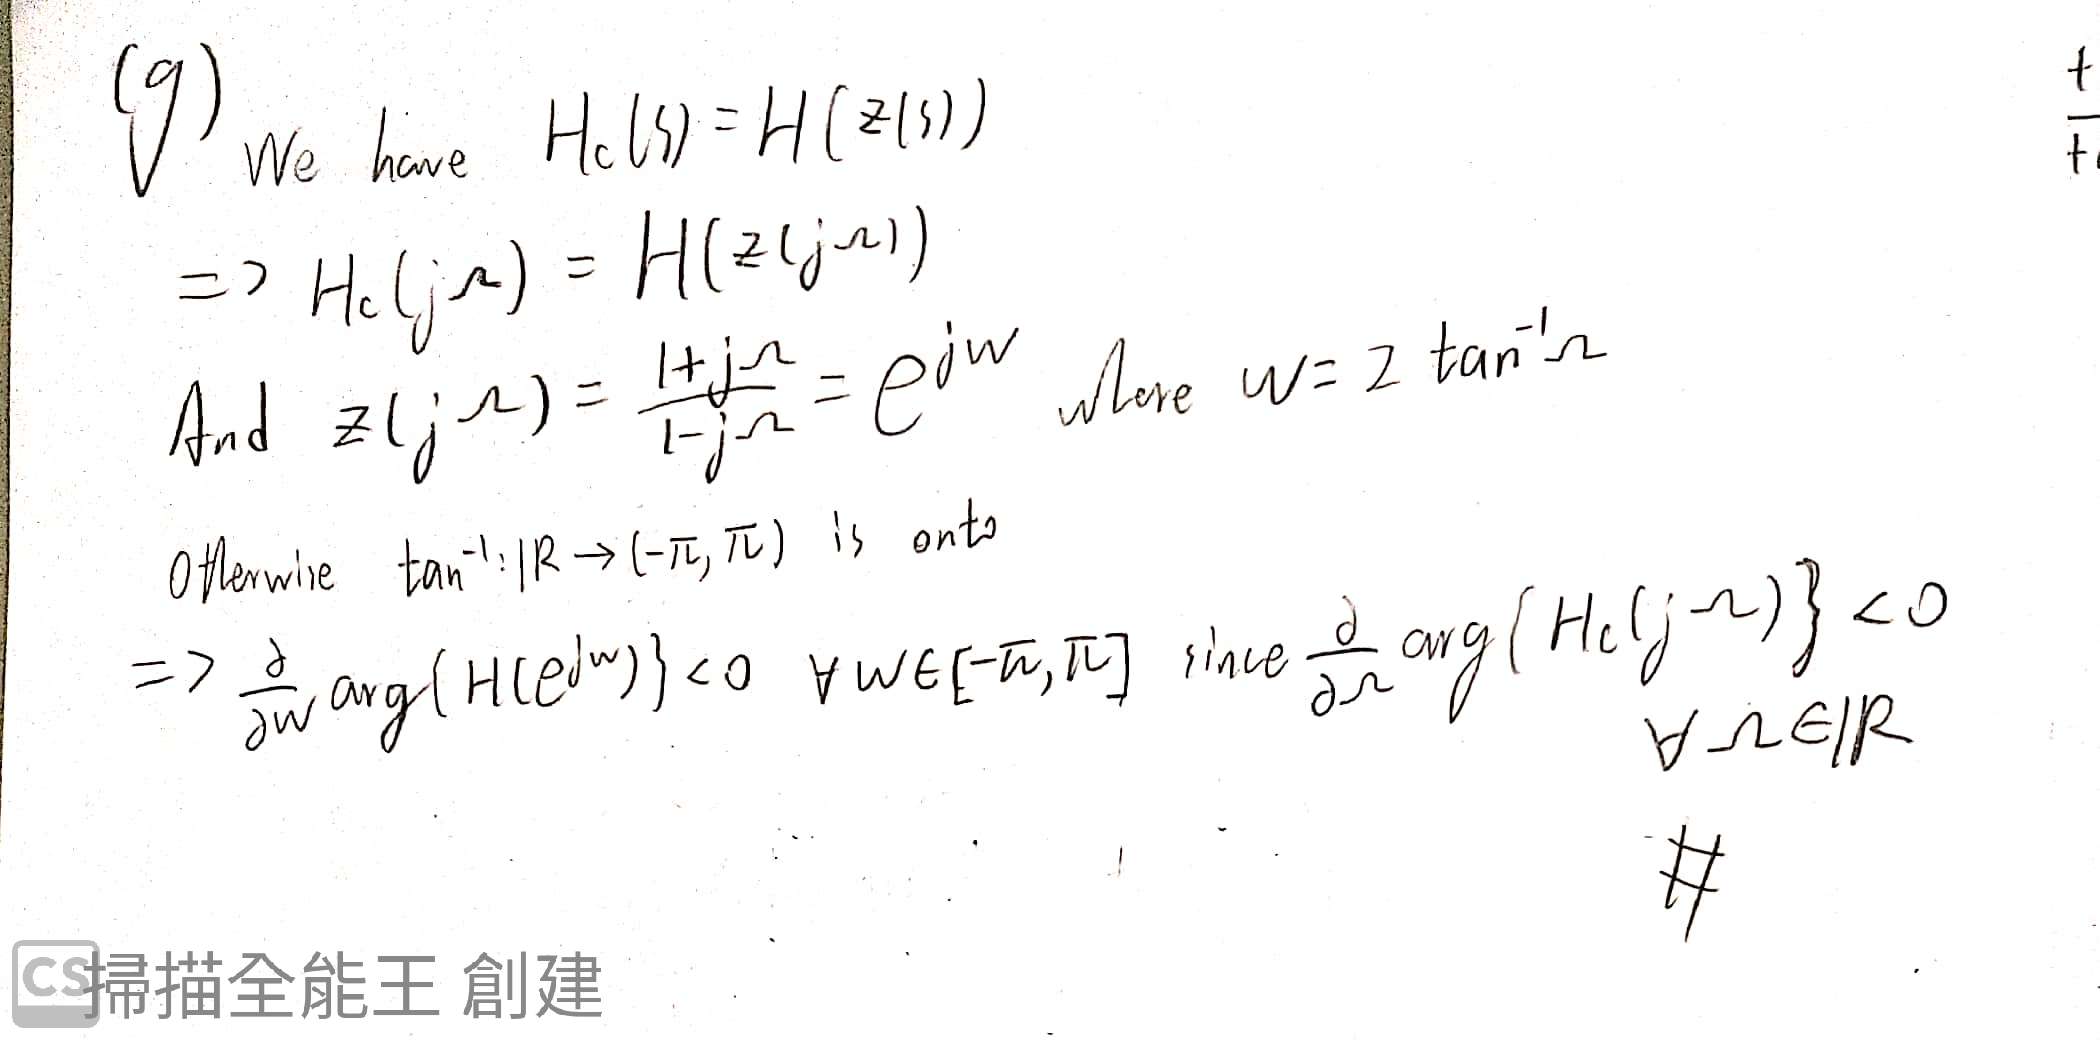 (g) We have Hc(s) = H(z(s))
=> Hc(jΩ) = H(z(jΩ))
And z(jΩ) = (1+jΩ)/(1-jΩ) = e^{jw} where w = 2 tan⁻¹Ω
Otherwise tan⁻¹: ℝ → (-π, π) is onto
=> ∂/∂w arg{H(e^{jw})} < 0 ∀ w ∈ [-π, π] since ∂/∂Ω arg{Hc(jΩ)} < 0
∀ Ω ∈ ℝ
#
CS掃描全能王 創建